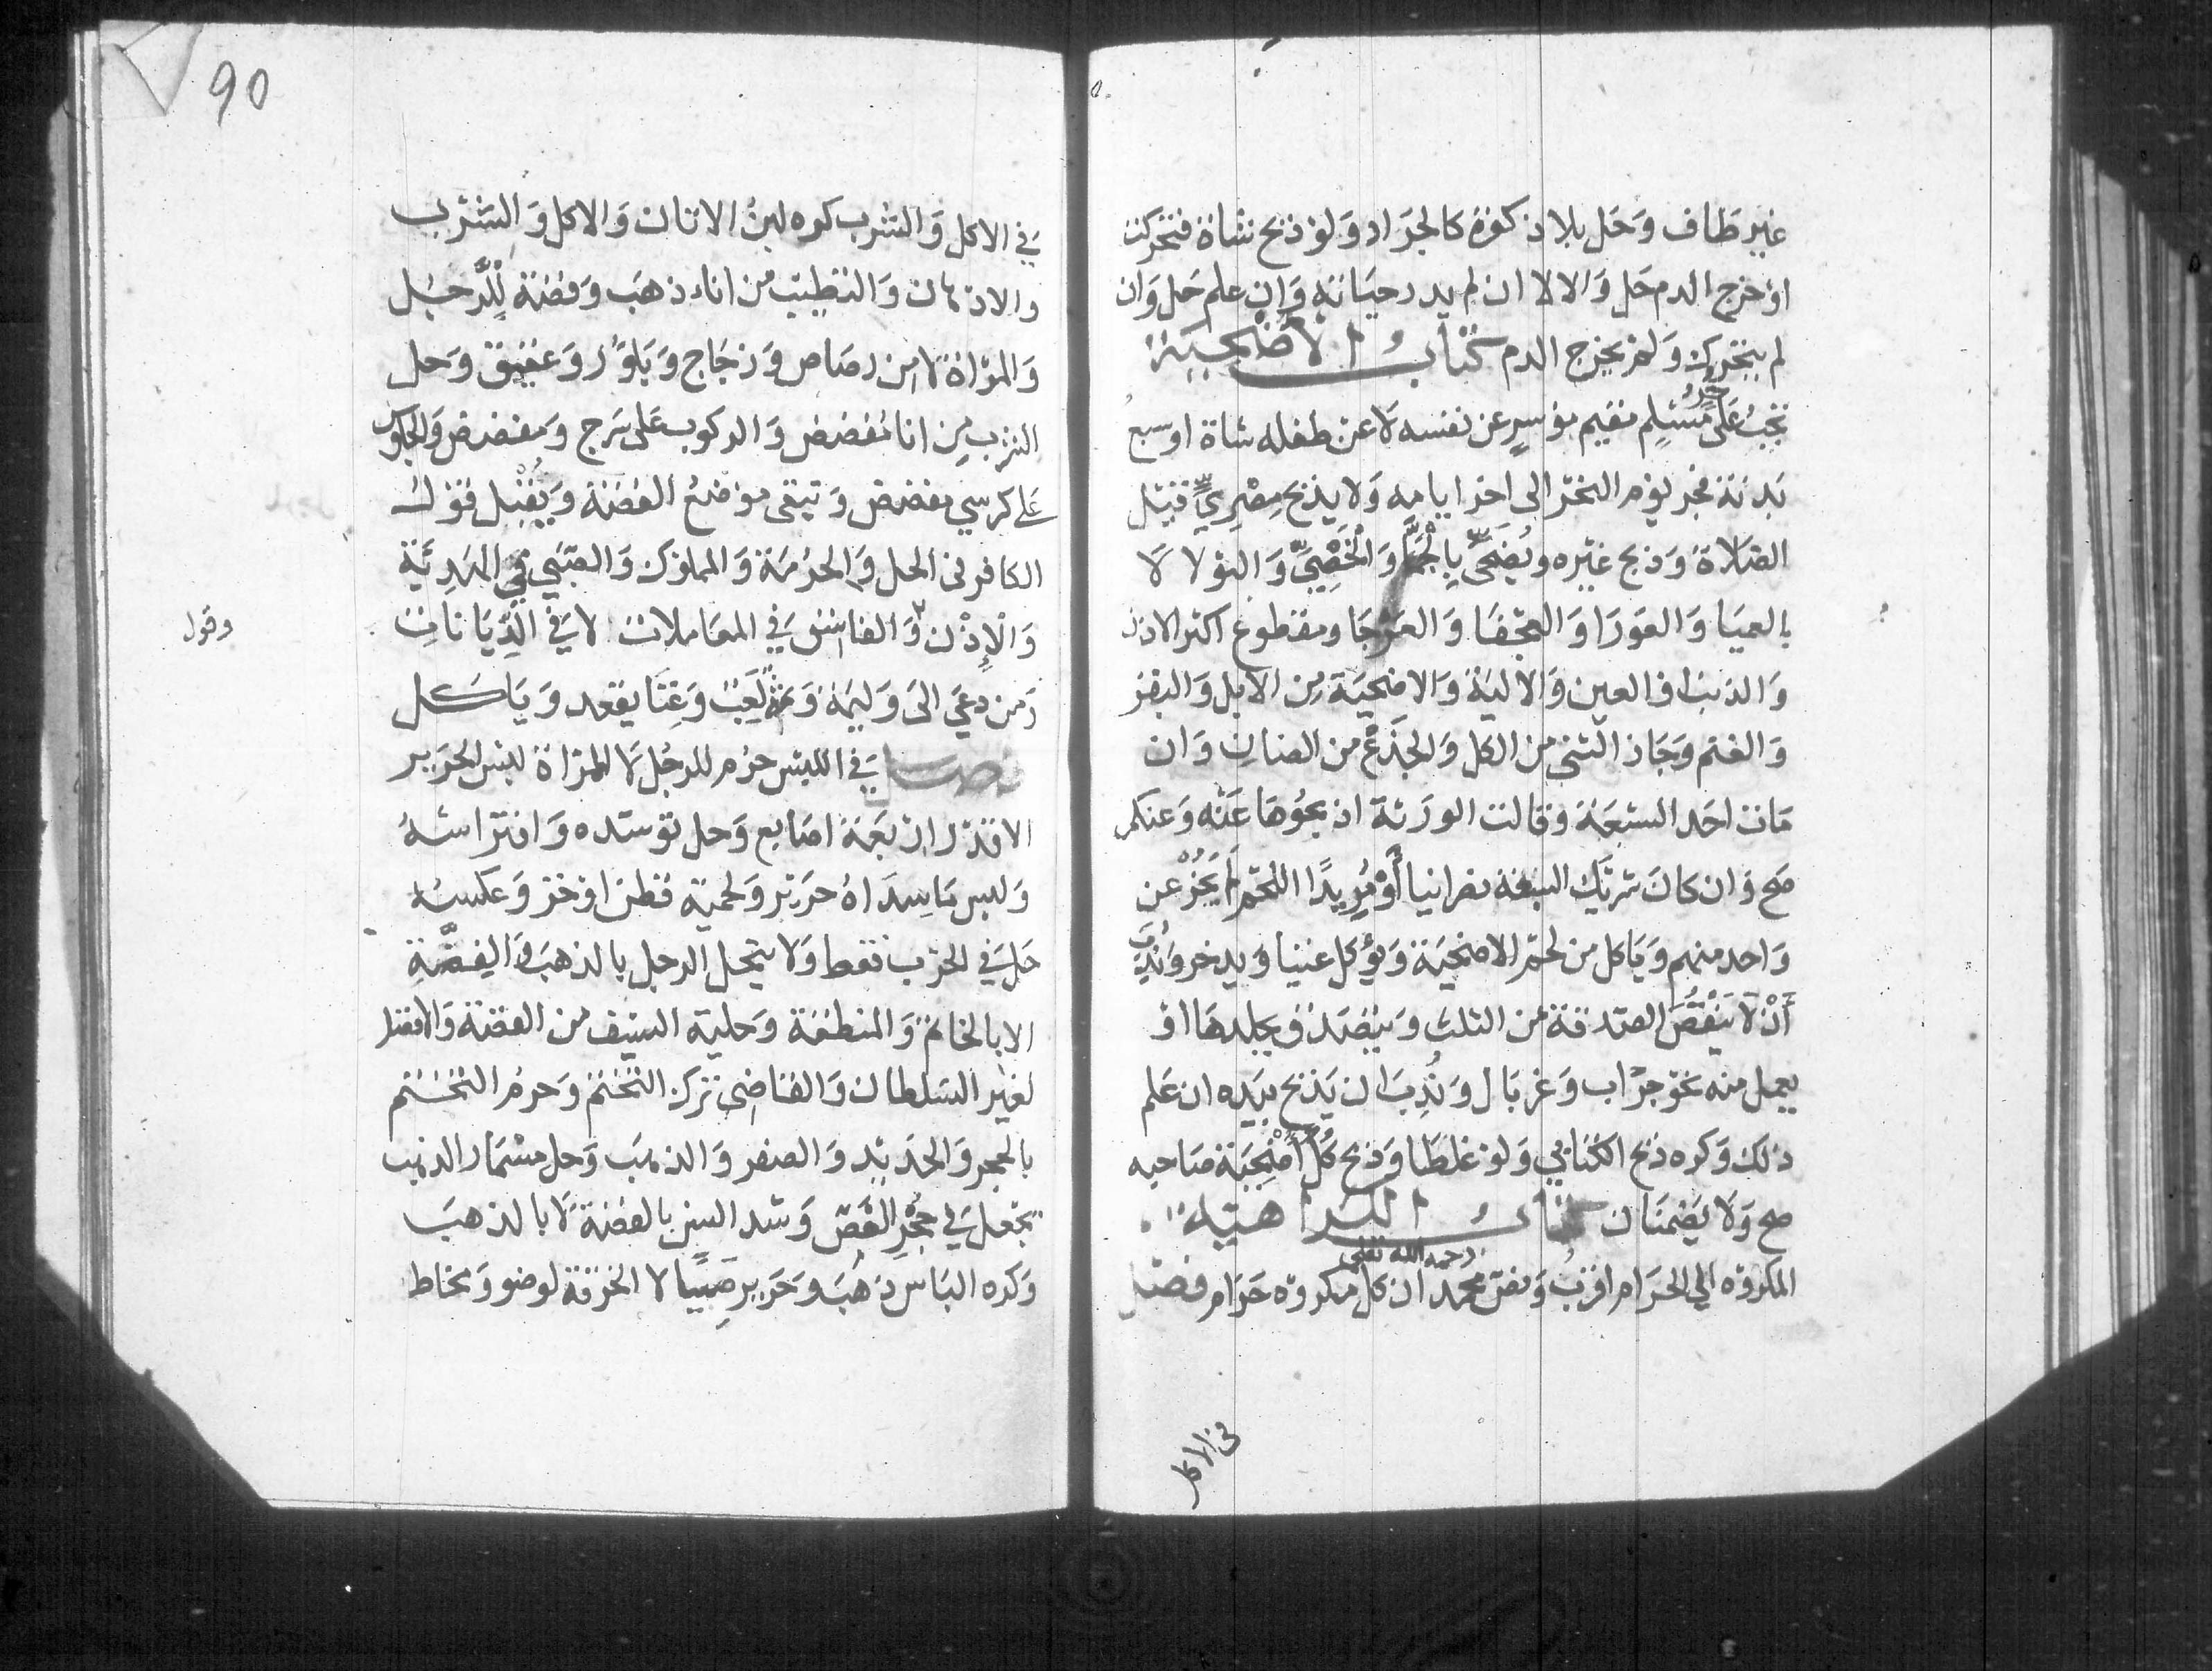 غير طاف وَحَل بلا ذكوة كالجرَاد وَلوْ ذبح شاة فتحركت
اوْ خرج الدم حَل وَالا لا ان لم يدر حيَاته وَان علم حَل وَان
لم يتحرك وَلمْ يخرج الدم كتابُ الاضحية
تجبُ عَلى حُرٍّ مُسْلِم مقيم موْسرٍ عن نفسه لَا عن طفله شاة اوسبعُ
بَدنَة فجر يوْم النحْر الى اخر ايامه وَلا يذبح مِصْرِيٌّ قبْل
الصَّلَاة وَذبح غيْره ويُضَحَّى بِالْجَمَّا وَالْخَصِيّ وَالثوْلا لَا
بالعميَا وَالعَوْرَا وَالعجْفَا وَالعَرْجَا ومقطوع اكثر الاذن
وَالذنب اوْ العين وَالاليَة وَالاضحيَة مِن الابل وَالبقر
وَالغنم وَجَاز الثني من الكل وَالجذَعْ من الضان وَان
مَات احَد السبْعَة وقالت الورَثة اذبحُوهَا عَنْه وَعنكم
صَح وَان كانَ شريْك السبْعَة نصرانيا أوْ مُرِيدًا اللحْم لَمْ يَجُزْ عن
وَاحد منهم وَيَاكل من لحْم الاضحيَة وَيُؤكل غنيا وَيدخر وَنُدِبَ
أنْ لَا يَنْقُصَ الصَّدَقة من الثلث وَيتصَدق بجلدهَا اوْ
يعمل منه نحو جرَاب وَغربَال وَنُدِبَ ان يَذبح بيَده ان عَلم
ذلك وَكره ذبح الكتابي وَلوْ غلطَا وَذبح كُلٌّ اُضْحِيَة صَاحبه
صح وَلَا يَضمنَان كتابُ الكراهية
المكروْه الي الحرَام اقرَبُ وَنصّ محمد رحمه الله تعلى ان كل مكروْه حَرَام فصْل
في الاكل
90
في الاكل وَالشرب كره لبنُ الاتان وَالاكل وَالشرْب
والادهان وَالتطيب من اناء ذهَب وَفضة لِلرَّجُل
وَالمرْاة لَا مِن رصَاص وَزجَاج وَبلوْر وَعقيق وَحل
الشرب مِن انا مُفضض وَالركوب عَلى سَرج وَمفضض وَالجلوس
عَلى كرسي مفضض وَيتقى موْضعُ الفضة وَيقْبل قوْل
الكافر فى الحل وَالحرْمَة وَالمملوك وَالصبي في الهدِيَّة
وَالْاِذْن وَالفاسق في المعَاملات لا في الدِّيَاناتِ
وَمن دعى الى وَليمَة وَثمة لعِبٌ وَغِنَا يقعد وَيَاكل
فصل في اللبْس حرُم للرجُل لَا للمرْاة لبْس الحَرير
الا قدْر ارْبعَة اصَابع وَحل توسّده وَافترَاشهُ
وَلبس مَا سدَاهُ حَرير وَلحمته قطن اوْ خز وَعكسُه
حَل في الحرْب فقط وَلَا يتحَل الرجل بالذهَب وَالفضَّةِ
الا بالخاتم وَالمنطقة وَحلية السيْف من الفضة وَالافضل
لغيْر السلطان وَالقاضي ترك التختم وَحرمُ التختم
بالحجر وَالحَديْد وَالصفر وَالذهَب وَحل مسْمَار الذهب
يجْعل في حِجْر الفَصّ وَشد السن بالفضة لَا بالذهب
وَكره البَاس ذهَب وَحَرير صبِيًّا لا الخرقة لوضو وَمخاط
وقول